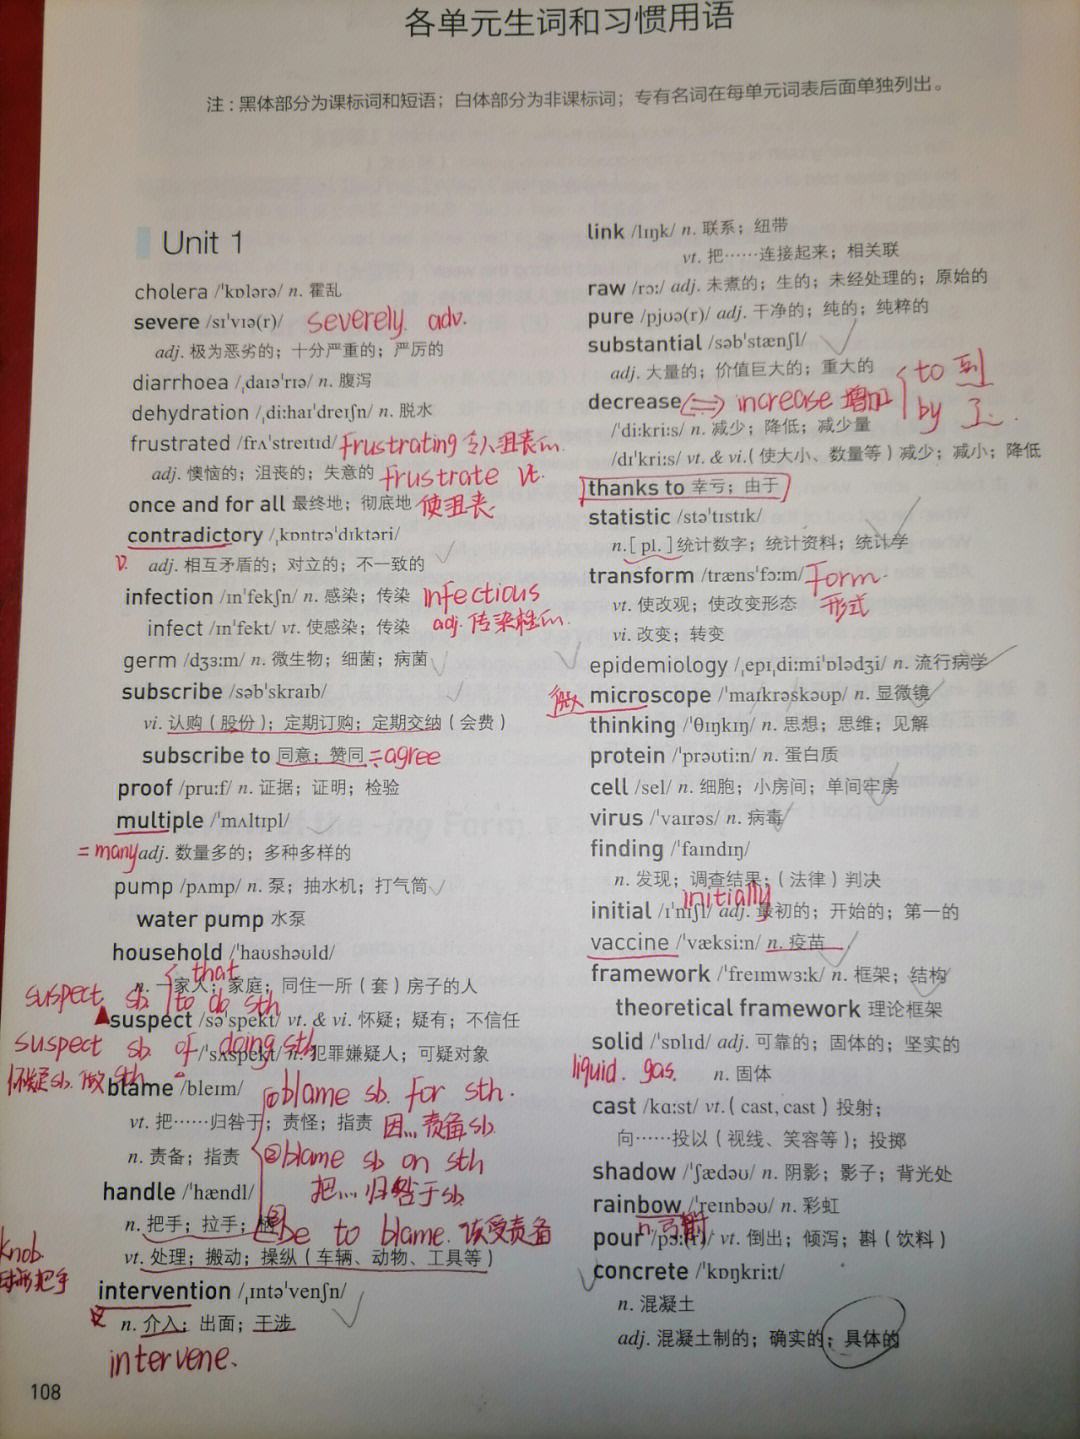 各单元生词和习惯用语
注：黑体部分为课标词和短语；白体部分为非课标词；专有名词在每单元词表后面单独列出。
Unit 1
cholera /ˈkɒlərə/ n. 霍乱
severe /sɪˈvɪə(r)/ severely. adv.
adj. 极为恶劣的；十分严重的；严厉的
diarrhoea /ˌdaɪəˈrɪə/ n. 腹泻
dehydration /ˌdiːhaɪˈdreɪʃn/ n. 脱水
frustrated /frʌˈstreɪtɪd/ frustrating 令人沮丧的
adj. 懊恼的；沮丧的；失意的 frustrate vt.
once and for all 最终地；彻底地 使沮丧
contradictory /ˌkɒntrəˈdɪktəri/
adj. 相互矛盾的；对立的；不一致的
infection /ɪnˈfekʃn/ n. 感染；传染 infectious
infect /ɪnˈfekt/ vt. 使感染；传染 adj. 传染性的
germ /dʒɜːm/ n. 微生物；细菌；病菌
subscribe /səbˈskraɪb/
vi. 认购（股份）；定期订购；定期交纳（会费）
subscribe to 同意；赞同 = agree
proof /pruːf/ n. 证据；证明；检验
multiple /ˈmʌltɪpl/
= many adj. 数量多的；多种多样的
pump /pʌmp/ n. 泵；抽水机；打气筒
water pump 水泵
household /ˈhaʊshəʊld/
that
n. 一家人；家庭；同住一所（套）房子的人
suspect sb. to do sth
suspect /səˈspekt/ vt. & vi. 怀疑；疑有；不信任
suspect sb of doing sth
/ˈsʌspekt/ n. 犯罪嫌疑人；可疑对象
怀疑sb. 做sth
blame /bleɪm/ ①blame sb. for sth.
vt. 把……归咎于；责怪；指责 因… 责备sb.
n. 责备；指责 ②blame sb on sth
把… 归咎于sb
handle /ˈhændl/
n. 把手；拉手；柄 ③be to blame. 该受责备
knob.
球形把手
vt. 处理；搬动；操纵（车辆、动物、工具等）
intervention /ˌɪntəˈvenʃn/
n. 介入；出面；干涉
intervene.
108
link /lɪŋk/ n. 联系；纽带
vt. 把……连接起来；相关联
raw /rɔː/ adj. 未煮的；生的；未经处理的；原始的
pure /pjʊə(r)/ adj. 干净的；纯的；纯粹的
substantial /səbˈstænʃl/
adj. 大量的；价值巨大的；重大的
decrease ⟺ increase 增加 to 到
by 了
/ˈdiːkriːs/ n. 减少；降低；减少量
/dɪˈkriːs/ vt. & vi.（使大小、数量等）减少；减小；降低
thanks to 幸亏；由于
statistic /stəˈtɪstɪk/
n.[ pl. ] 统计数字；统计资料；统计学
transform /trænsˈfɔːm/ form
vt. 使改观；使改变形态 形式
vi. 改变；转变
epidemiology /ˌepɪˌdiːmiˈɒlədʒi/ n. 流行病学
微 microscope /ˈmaɪkrəskəʊp/ n. 显微镜
thinking /ˈθɪŋkɪŋ/ n. 思想；思维；见解
protein /ˈprəʊtiːn/ n. 蛋白质
cell /sel/ n. 细胞；小房间；单间牢房
virus /ˈvaɪrəs/ n. 病毒
finding /ˈfaɪndɪŋ/
n. 发现；调查结果；（法律）判决
initially
initial /ɪˈnɪʃl/ adj. 最初的；开始的；第一的
vaccine /ˈvæksiːn/ n. 疫苗
framework /ˈfreɪmwɜːk/ n. 框架；结构
theoretical framework 理论框架
solid /ˈsɒlɪd/ adj. 可靠的；固体的；坚实的
liquid. gas. n. 固体
cast /kɑːst/ vt.（ cast, cast ）投射；
向……投以（视线、笑容等）；投掷
shadow /ˈʃædəʊ/ n. 阴影；影子；背光处
rainbow /ˈreɪnbəʊ/ n. 彩虹
pour /pɔː(r)/ vt. 倒出；倾泻；斟（饮料）
concrete /ˈkɒŋkriːt/
n. 混凝土
adj. 混凝土制的；确实的；具体的